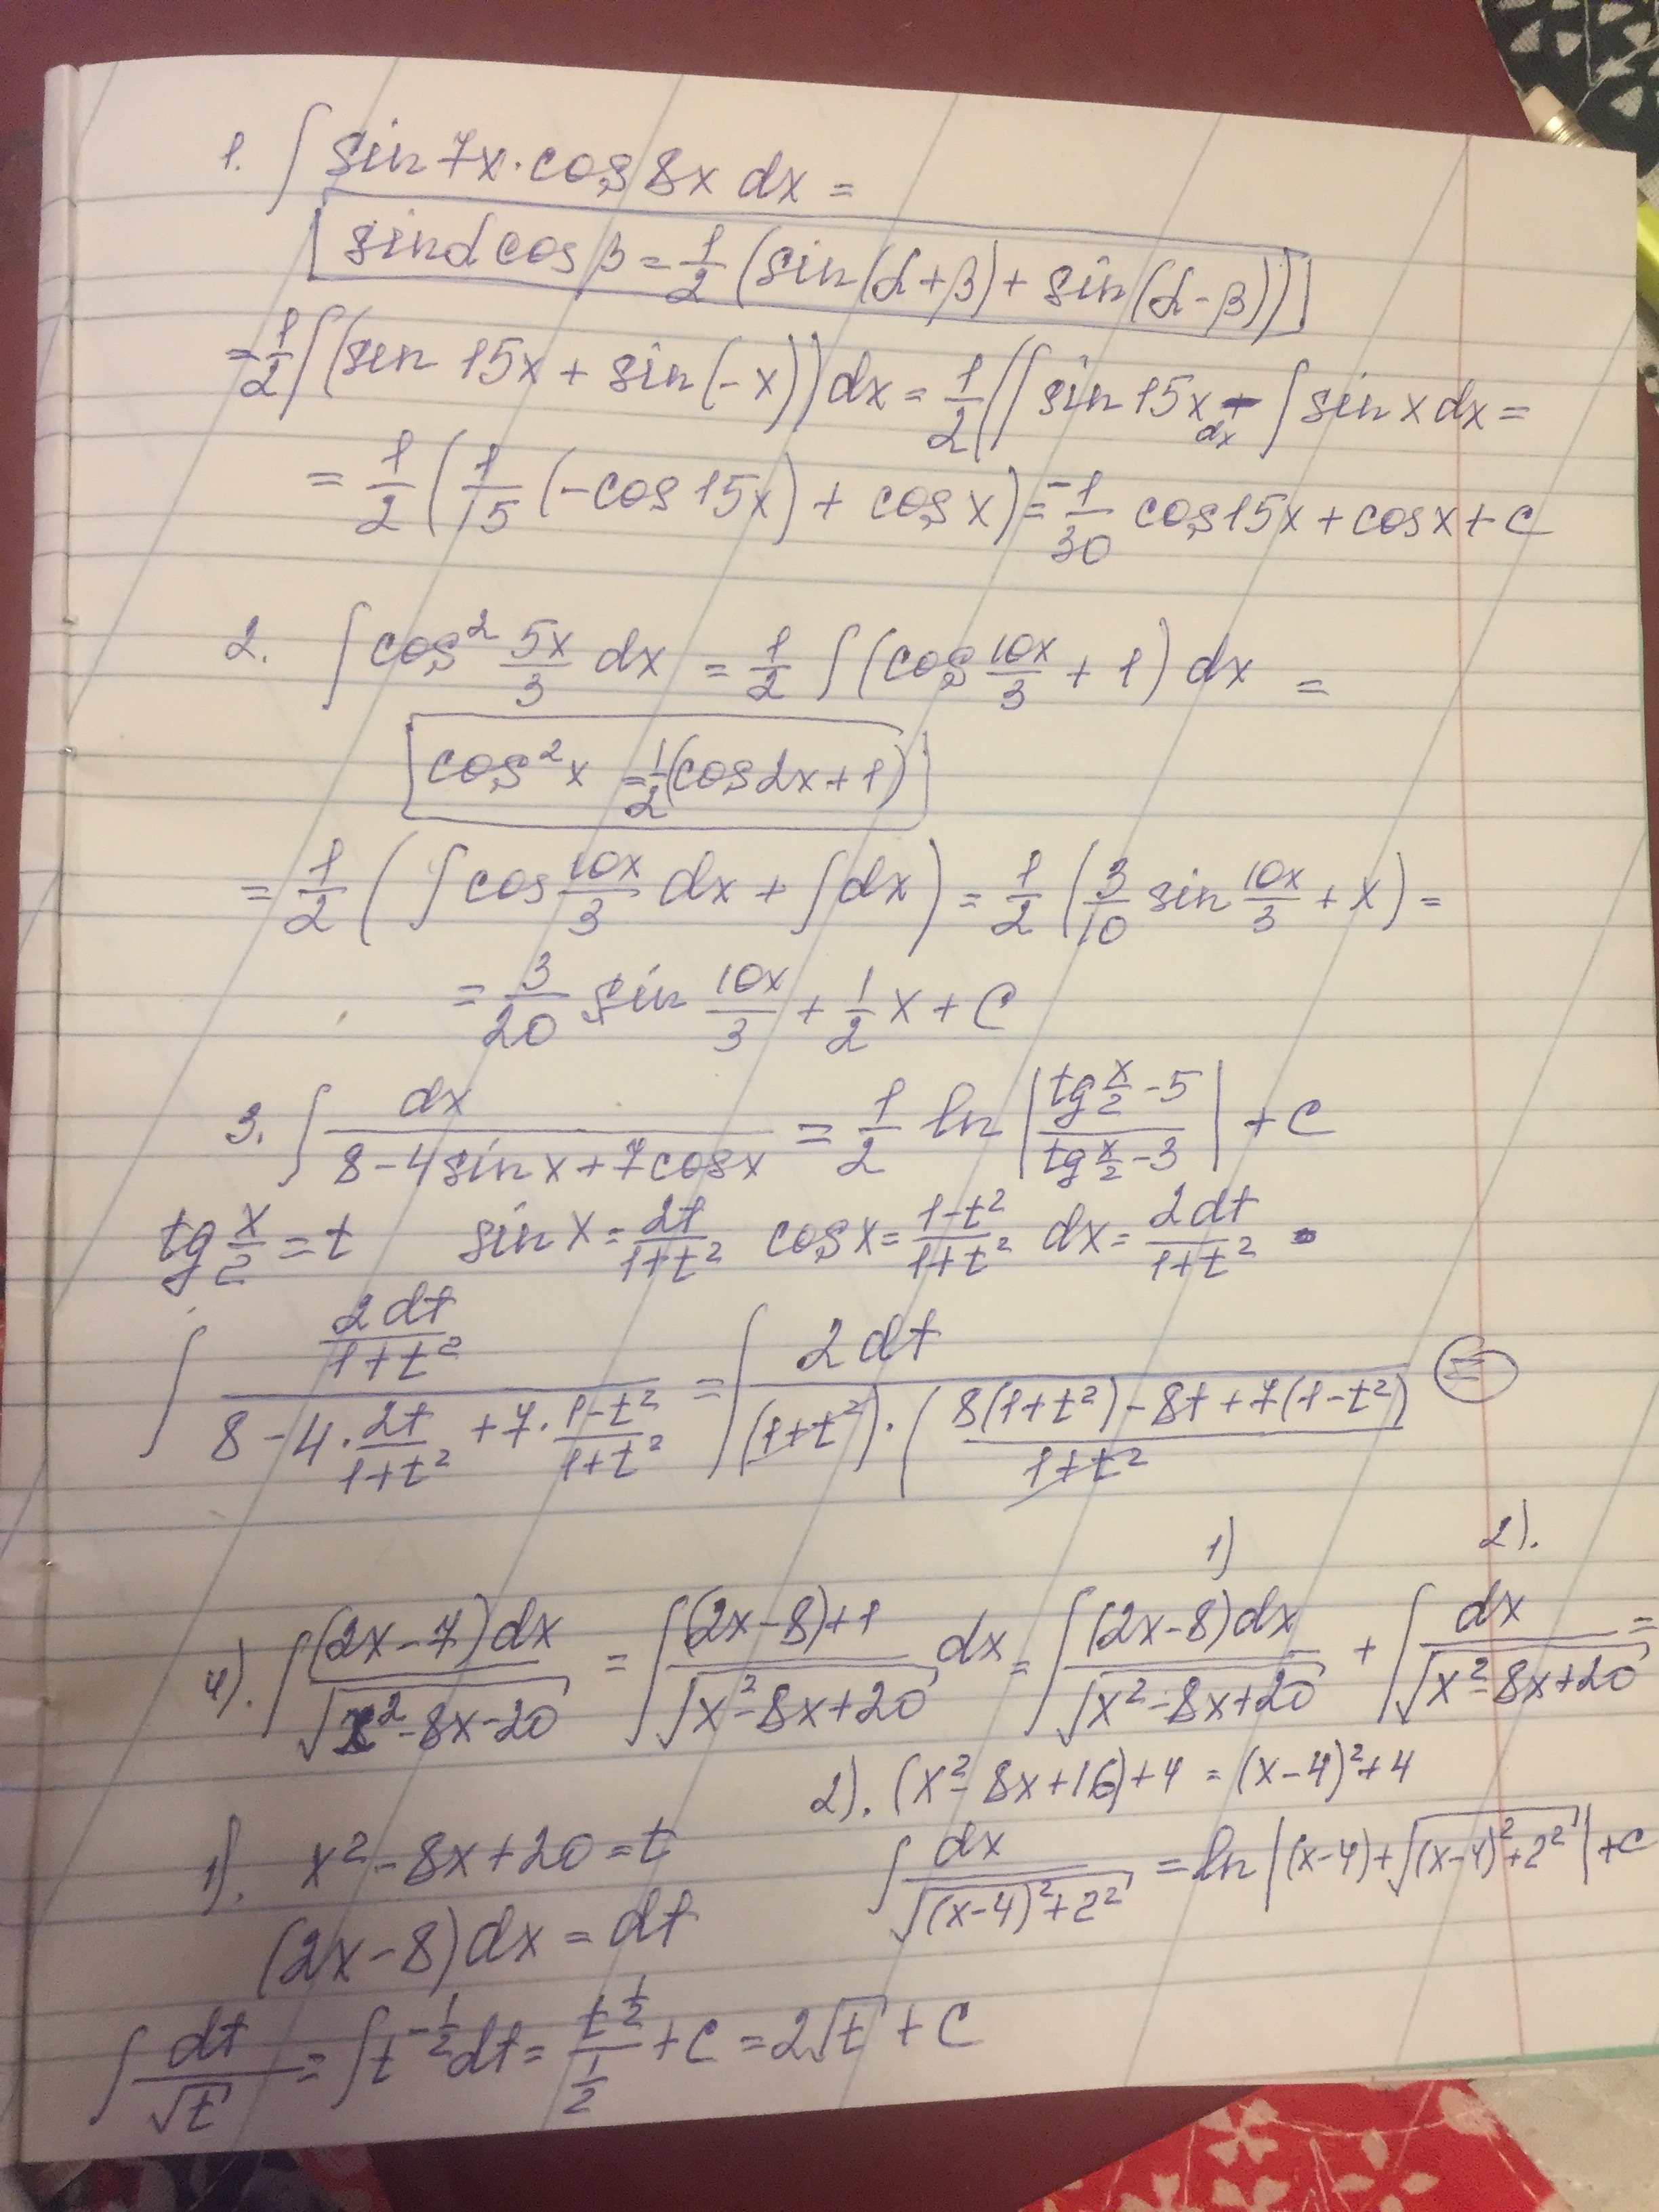 1. ∫ sin 7x · cos 8x dx =
[sin α cos β = 1/2 (sin(α+β) + sin(α-β))]
= 1/2 ∫ (sin 15x + sin(-x)) dx = 1/2 (∫ sin 15x dx - ∫ sin x dx =
= 1/2 (1/15 (-cos 15x) + cos x) = -1/30 cos 15x + cos x + C
2. ∫ cos² 5x/3 dx = 1/2 ∫ (cos 10x/3 + 1) dx =
[cos² x = 1/2 (cos 2x + 1)]
= 1/2 (∫ cos 10x/3 dx + ∫ dx) = 1/2 (3/10 sin 10x/3 + x) =
= 3/20 sin 10x/3 + 1/2 x + C
3. ∫ dx/(8 - 4 sin x + 7 cos x) = 1/2 ln |(tg x/2 - 5)/(tg x/2 - 3)| + C
tg x/2 = t sin x = 2t/(1+t²) cos x = (1-t²)/(1+t²) dx = 2dt/(1+t²)
∫ (2dt/(1+t²))/(8 - 4 · 2t/(1+t²) + 7 · (1-t²)/(1+t²)) = ∫ 2dt/((1+t²) · ((8(1+t²) - 8t + 7(1-t²))/(1+t²) =
1) 2).
4). ∫ (2x-7)dx/√(x²-8x-20) = ∫ ((2x-8)+1)/√(x²-8x+20) dx = ∫ (2x-8)dx/√(x²-8x+20) + ∫ dx/√(x²-8x+20) =
2). (x²-8x+16)+4 = (x-4)²+4
1). x²-8x+20 = t
∫ dx/√((x-4)²+2²) = ln |(x-4)+√((x-4)²+2²)| + C
(2x-8)dx = dt
∫ dt/√t = ∫ t^(-1/2) dt = t^(1/2)/(1/2) + C = 2√t + C